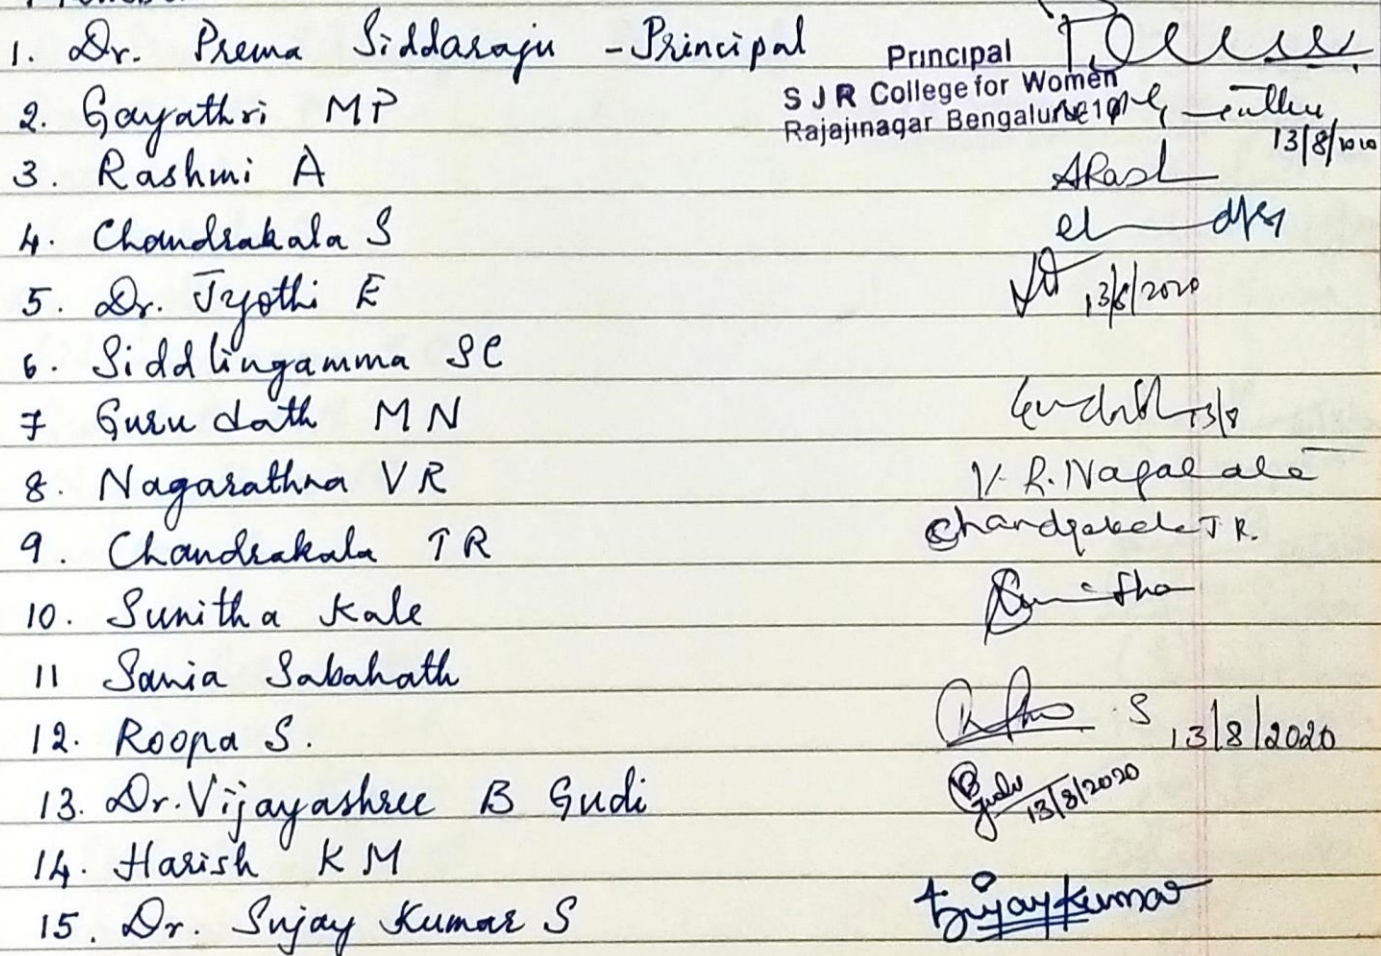 1. Dr. Prema Siddaraju - Principal
Principal
S J R College for Women
Rajajinagar Bengaluru
2. Gayathri MP
13/8/2020
3. Rashmi A ARash
4. Chandrakala S
5. Dr. Jyothi E 13/8/2020
6. Siddlingamma SC
7 Gurudath MN 13/8
8. Nagarathna V R V. R. Nagarathna
9. Chandrakala T R Chandrakala T R.
10. Sunitha Kale Sunitha
11 Sania Sabahath
12. Roopa S. S 13/8/2020
13. Dr. Vijayashree B Gudi B Gudi 13/8/2020
14. Harish K M
15. Dr. Sujay Kumar S Sujaykumar